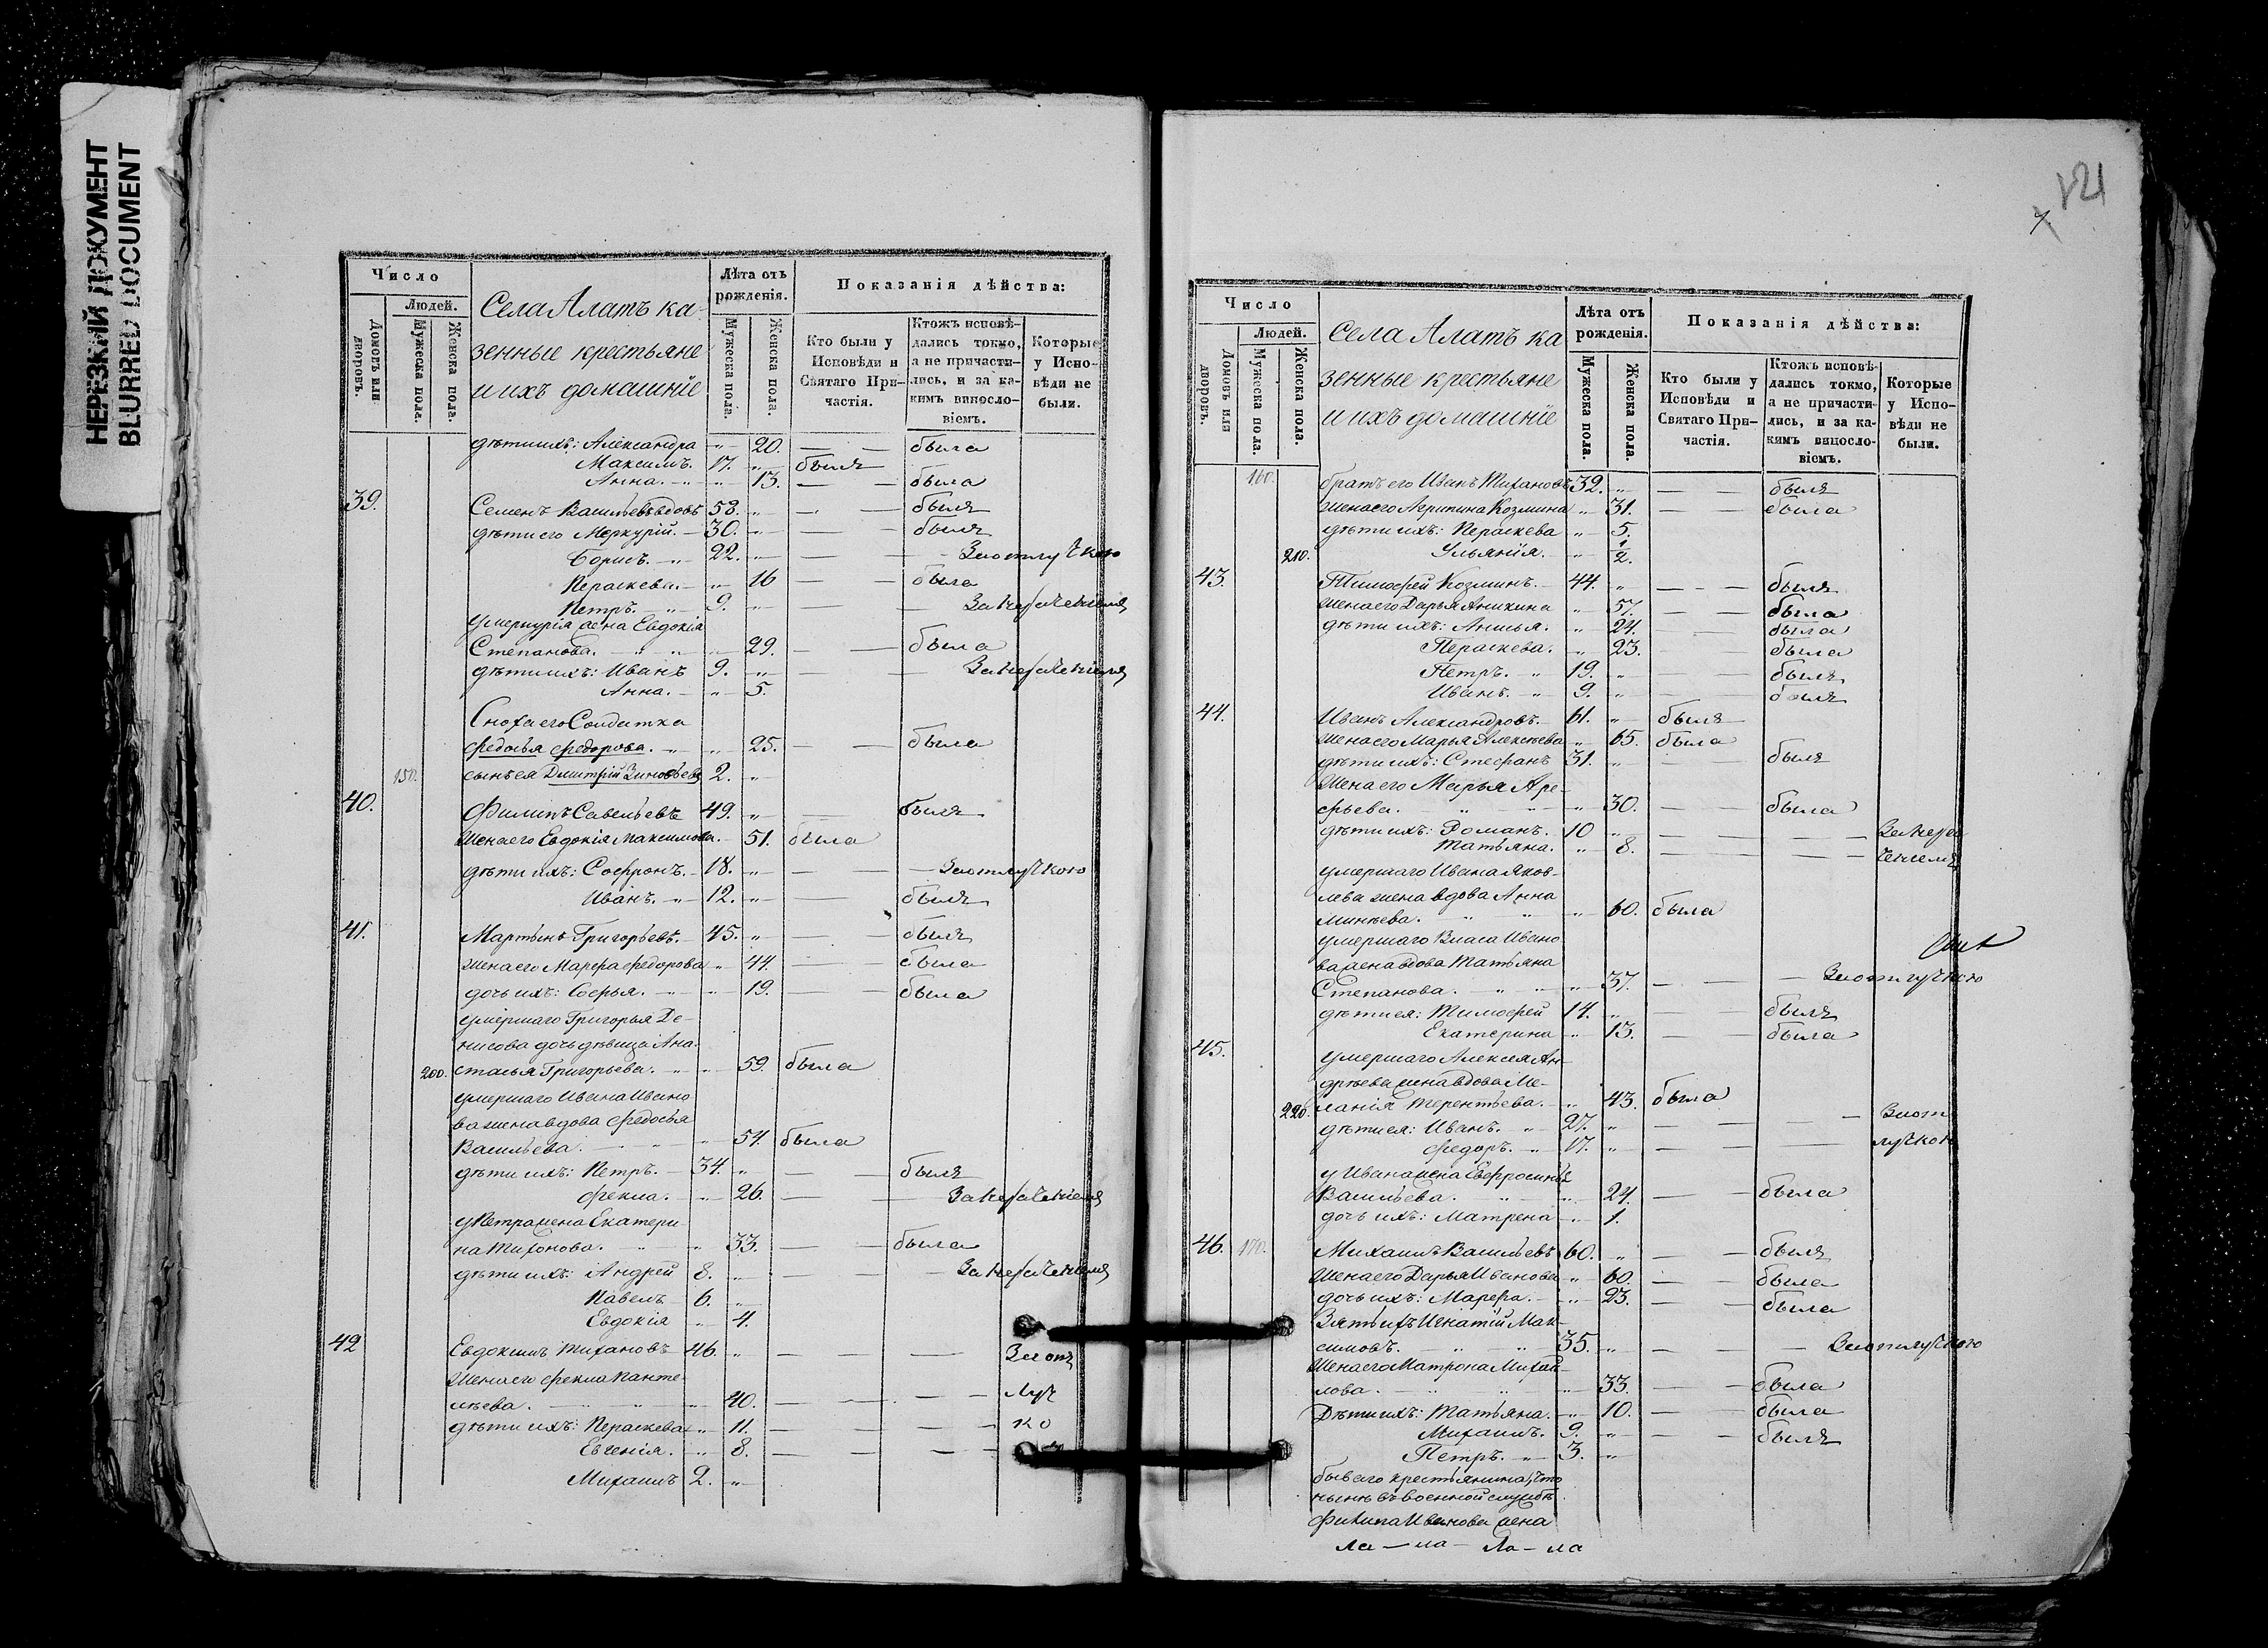 НЕРЕЗКИЙ ДОКУМЕНТ
BLURRED DOCUMENT
Число
Людей.
Домовъ или дворовъ.
Мужеска пола.
Женска пола.
Села Алатъ ка-
зенные крестьяне
и ихъ домашніе
Лѣта отъ рожденія.
Мужеска пола.
Женска пола.
Показанія дѣйства:
Кто были у Исповѣди и Святаго При-частія.
Ктожъ исповѣ-дались токмо, а не причасти-лись, и за ка-кимъ виносло-віемъ.
Которые у Испо-вѣди не были.
дѣти ихъ: Александра 20. была
Максимъ. 17. былъ
Анна. 13. была
39. Семенъ Васильевъ вдовъ 53. былъ
дѣти его Меркурій. 30. былъ
Борисъ. 22. За отлучкою
Пераскева. 16 была
Петръ. 9. За
у Меркурія жена Евдокія
Степанова. 29. была
дѣти ихъ: Иванъ 9. За
Анна. 5.
Сноха его Солдатка
Федосья Федорова. 25. была
150. сынъ ея Дмитрій Зиновьевъ 2.
40. Филипъ Савельевъ 49. былъ
Жена его Евдокія Максимова. 51. была
дѣти ихъ: Софронъ. 18. За отлучкою
Иванъ. 12. былъ
41. Мартынъ Григорьевъ. 45. былъ
Жена его Марфа Федорова 44. была
дочь ихъ: Софья. 19. была
умершаго Григорья Де-
нисова дочь дѣвица Ана-
200. стасья Григорьева. 59. была
умершаго Ивана Ивано
ва жена вдова Федосья
Васильева. 54. была
дѣти ихъ: Петръ. 34. былъ
Фекла. 26. За
у Петра жена Екатери
на Тихонова. 33. была
дѣти ихъ: Андрей 8. За
Павелъ 6.
Евдокія 4.
42 Евдокимъ Тихановъ 46. За от
Жена его Фекла Панте
лѣева. 40. луч
дѣти ихъ: Пераскева 11. ко
Евгенія. 8.
Михаилъ 2.
121
7.
Число
Людей.
Домовъ или дворовъ.
Мужеска пола.
Женска пола.
Села Алатъ ка
зенные крестьяне
и ихъ домашніе
Лѣта отъ рожденія.
Мужеска пола.
Женска пола.
Показанія дѣйства:
Кто были у Исповѣди и Святаго При-частія.
Ктожъ исповѣ-дались токмо, а не причасти-лись, и за ка-кимъ виносло-віемъ.
Которые у Испо-вѣди не были.
160. братъ его Иванъ Тихановъ 32. былъ
Жена его Агрипина Козмина 31. была
дѣти ихъ: Пераскева 5.
210. Ульянія. 1/2.
43. Тимофей Козминъ. 44. былъ
Жена его Дарья Аникина 57. была
дѣти ихъ: Анисья. 24. была
Пераскева. 23. была
Петръ. 19. былъ
Иванъ. 9. былъ
44. Иванъ Александровъ. 61. былъ
Жена его Марья Алексѣева 65. была
дѣти ихъ: Стефанъ 31. былъ
Жена его Марья Аре-
фьева. 30. была
дѣти ихъ: Романъ. 10
Татьяна. 8.
умершаго Ивана Яков-
лева жена вдова Анна
Минѣева. 60. была
умершаго Власа Ивано
ва жена вдова Татьяна
Степанова. 37. За отлучкою
дѣти ея: Тимофей 14. былъ
Екатерина 13. была
45. умершаго Алексея Ан-
дрѣева жена вдова Ме-
220. ланія Терентьева. 43. была
дѣти ея: Иванъ. 27. За от
Федоръ. 17. лучкою
у Ивана жена Евфросинья
Васильева. 24. была
дочь ихъ: Матрена 1.
46. 170. Михаилъ Васильевъ 60. былъ
Жена его Дарья Иванова 60. была
дочь ихъ: Марфа. 23. была
Зять ихъ Игнатій Мак-
симовъ. 35. За отлучкою
Жена его Матрона Михай-
лова. 33. была
Дѣти ихъ: Татьяна. 10. была
Михаилъ. 9. былъ
Петръ. 3.
бывшаго крестьянина, что
нынѣ въ военной службѣ
Филипа Иванова жена